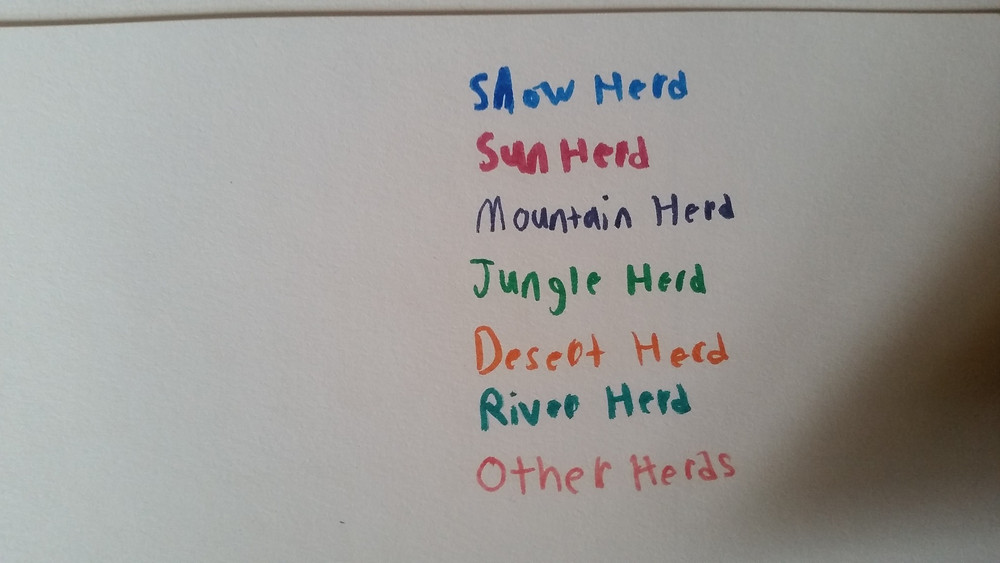 Snow Herd
Sun Herd
Mountain Herd
Jungle Herd
Desert Herd
River Herd
Other Herds